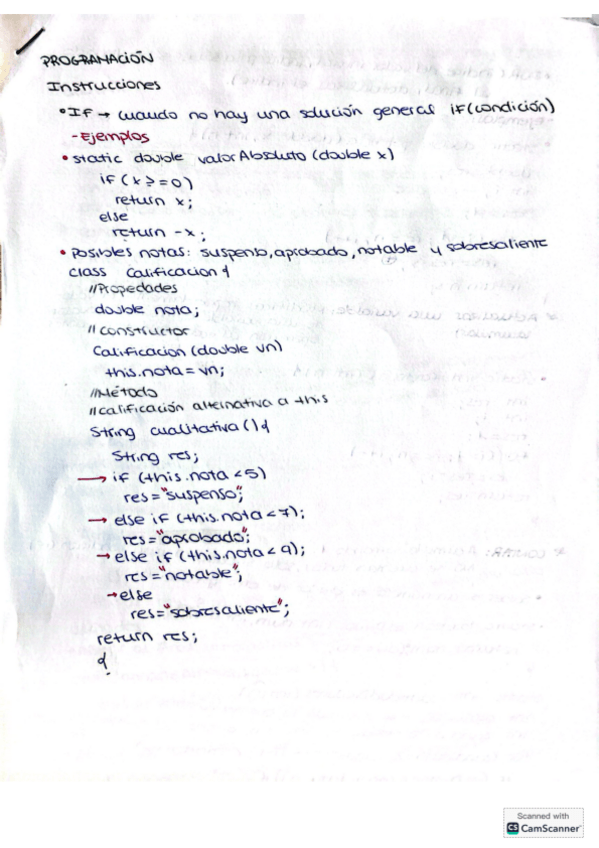 PROGRAMACIÓN
Instrucciones
• If → cuando no hay una solución general if(condición)
- Ejemplos
• static double valorAbsoluto (double x)
if (x >= 0)
return x;
else
return -x;
• Posibles notas: suspenso, aprobado, notable y sobresaliente
class Calificacion {
//Propiedades
double nota;
// constructor
Calificacion (double vn)
this.nota = vn;
//Método
//calificación alternativa a this
String cualitativa () {
String res;
→ if (this.nota < 5)
res = "suspenso";
→ else if (this.nota < 7);
res = "aprobado";
→ else if (this.nota < 9);
res = "notable";
→ else
res = "sobresaliente";
return res;
{
Scanned with
CS CamScanner